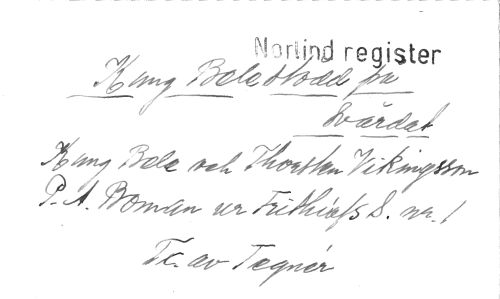 Norlind register
Kung Bele stödd på
Svärdet
Kung Bele och Thorsten Vikingsson
P. A. Boman ur Frithiofs S. nr. 1
Tc. av Tegnér